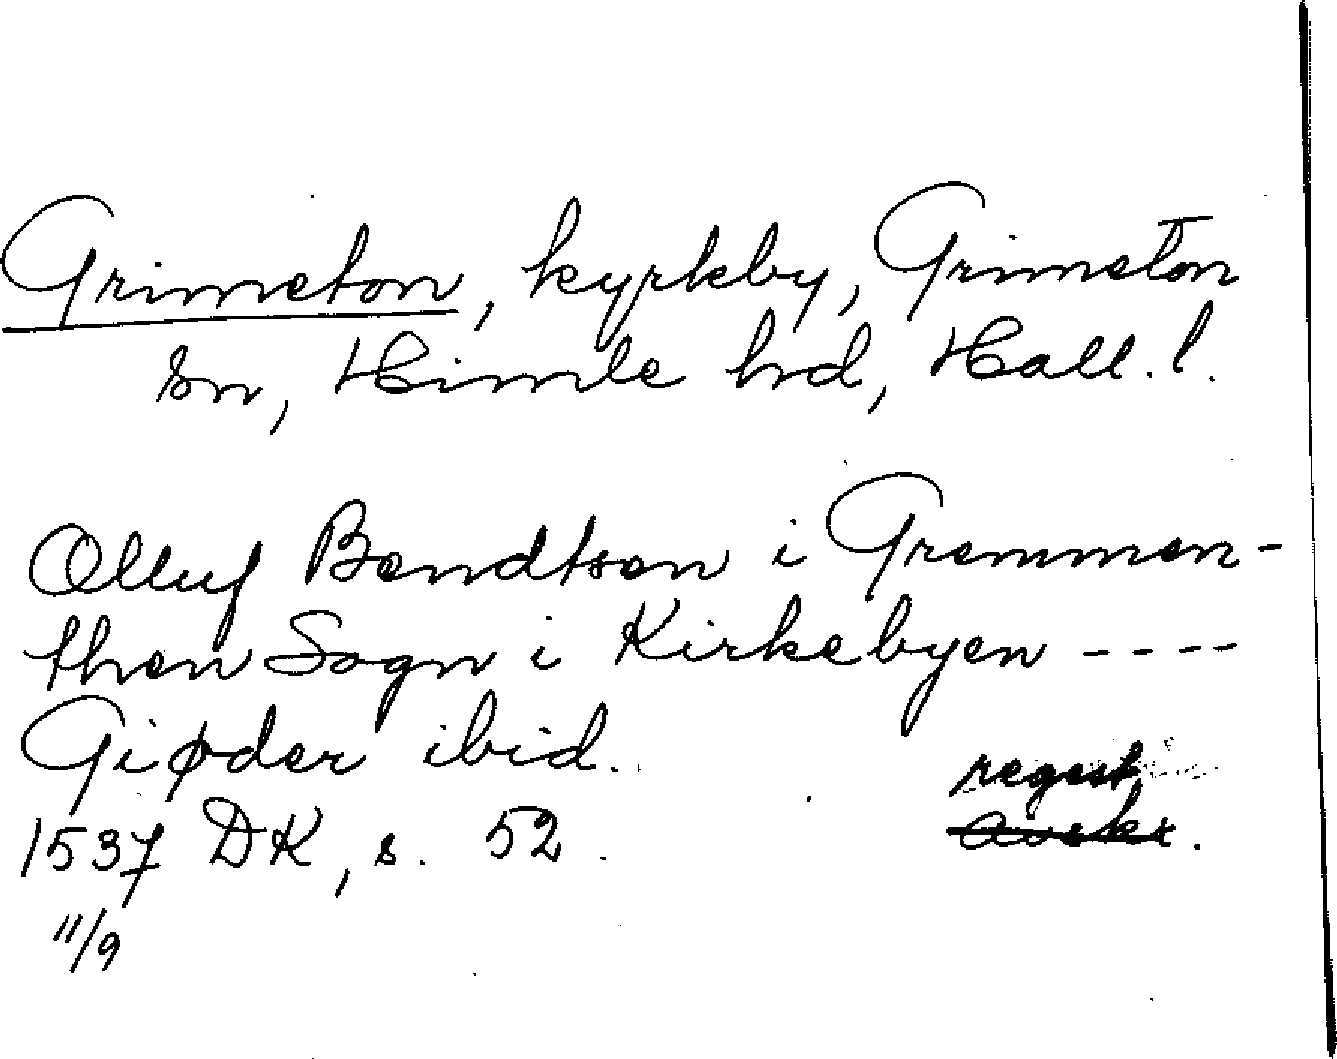 Grimeton, kyrkby, Grimeton
sn, Himle hd, Hall. l.
Olluf Bendtsen i Gremmen-
then Sogn i Kirkebyen ----
Giøder ibid.
regest.
1537 DK, s. 52. avskr.
11/9